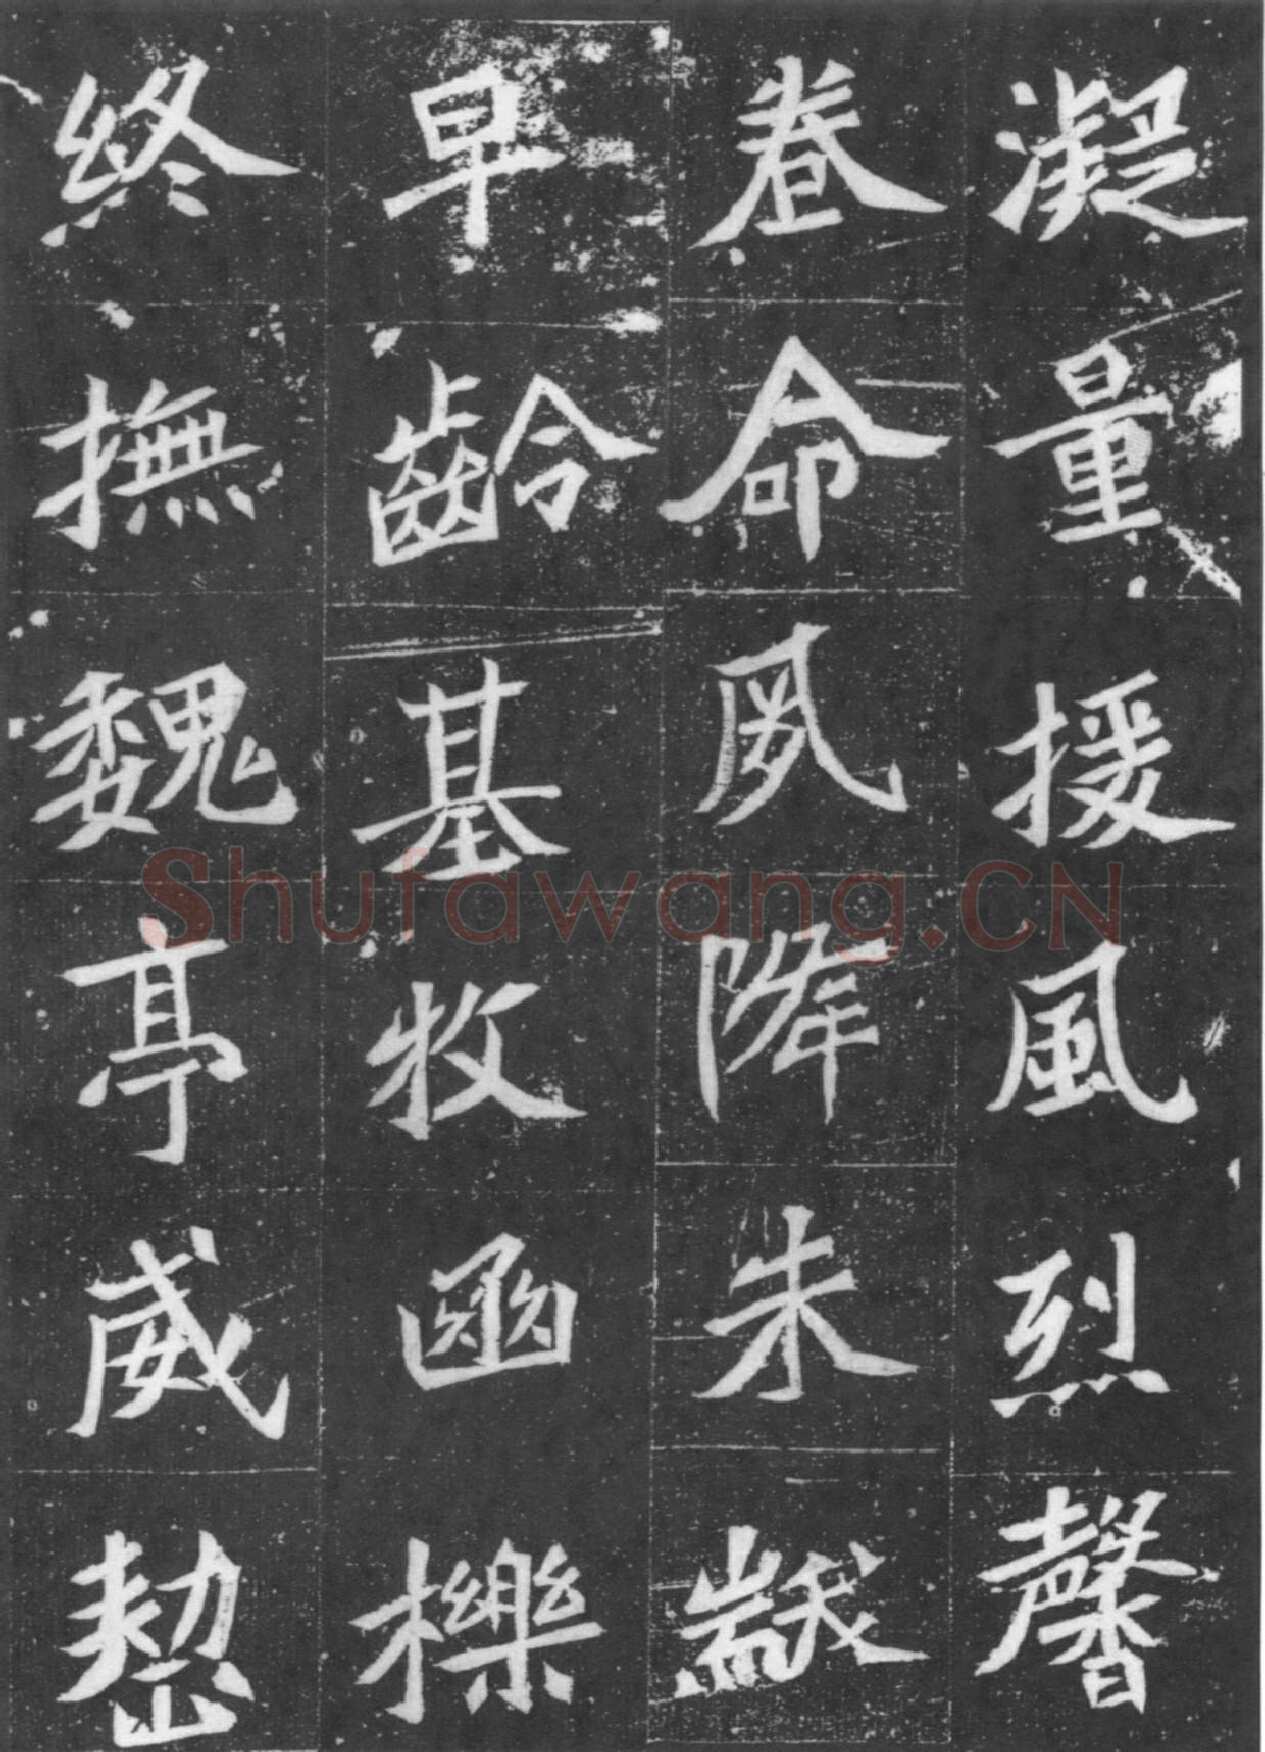 凝量援風烈馨
眷命夙降朱黻
早齡基牧函櫟
終撫魏亭威
Shufawang.CN